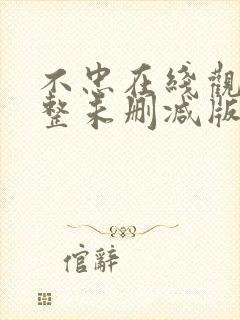 不忠在綫觀
整未刪減版
倌辭